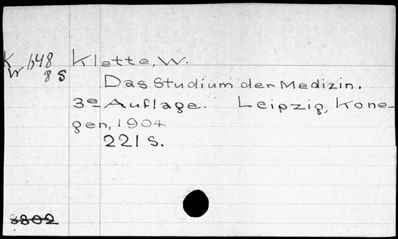 K 648 Klette, W.
W 8 S
Das Studium der Medizin.
3e Auflage. Leipzig, Kone-
gen, 1904
221 S.
3802